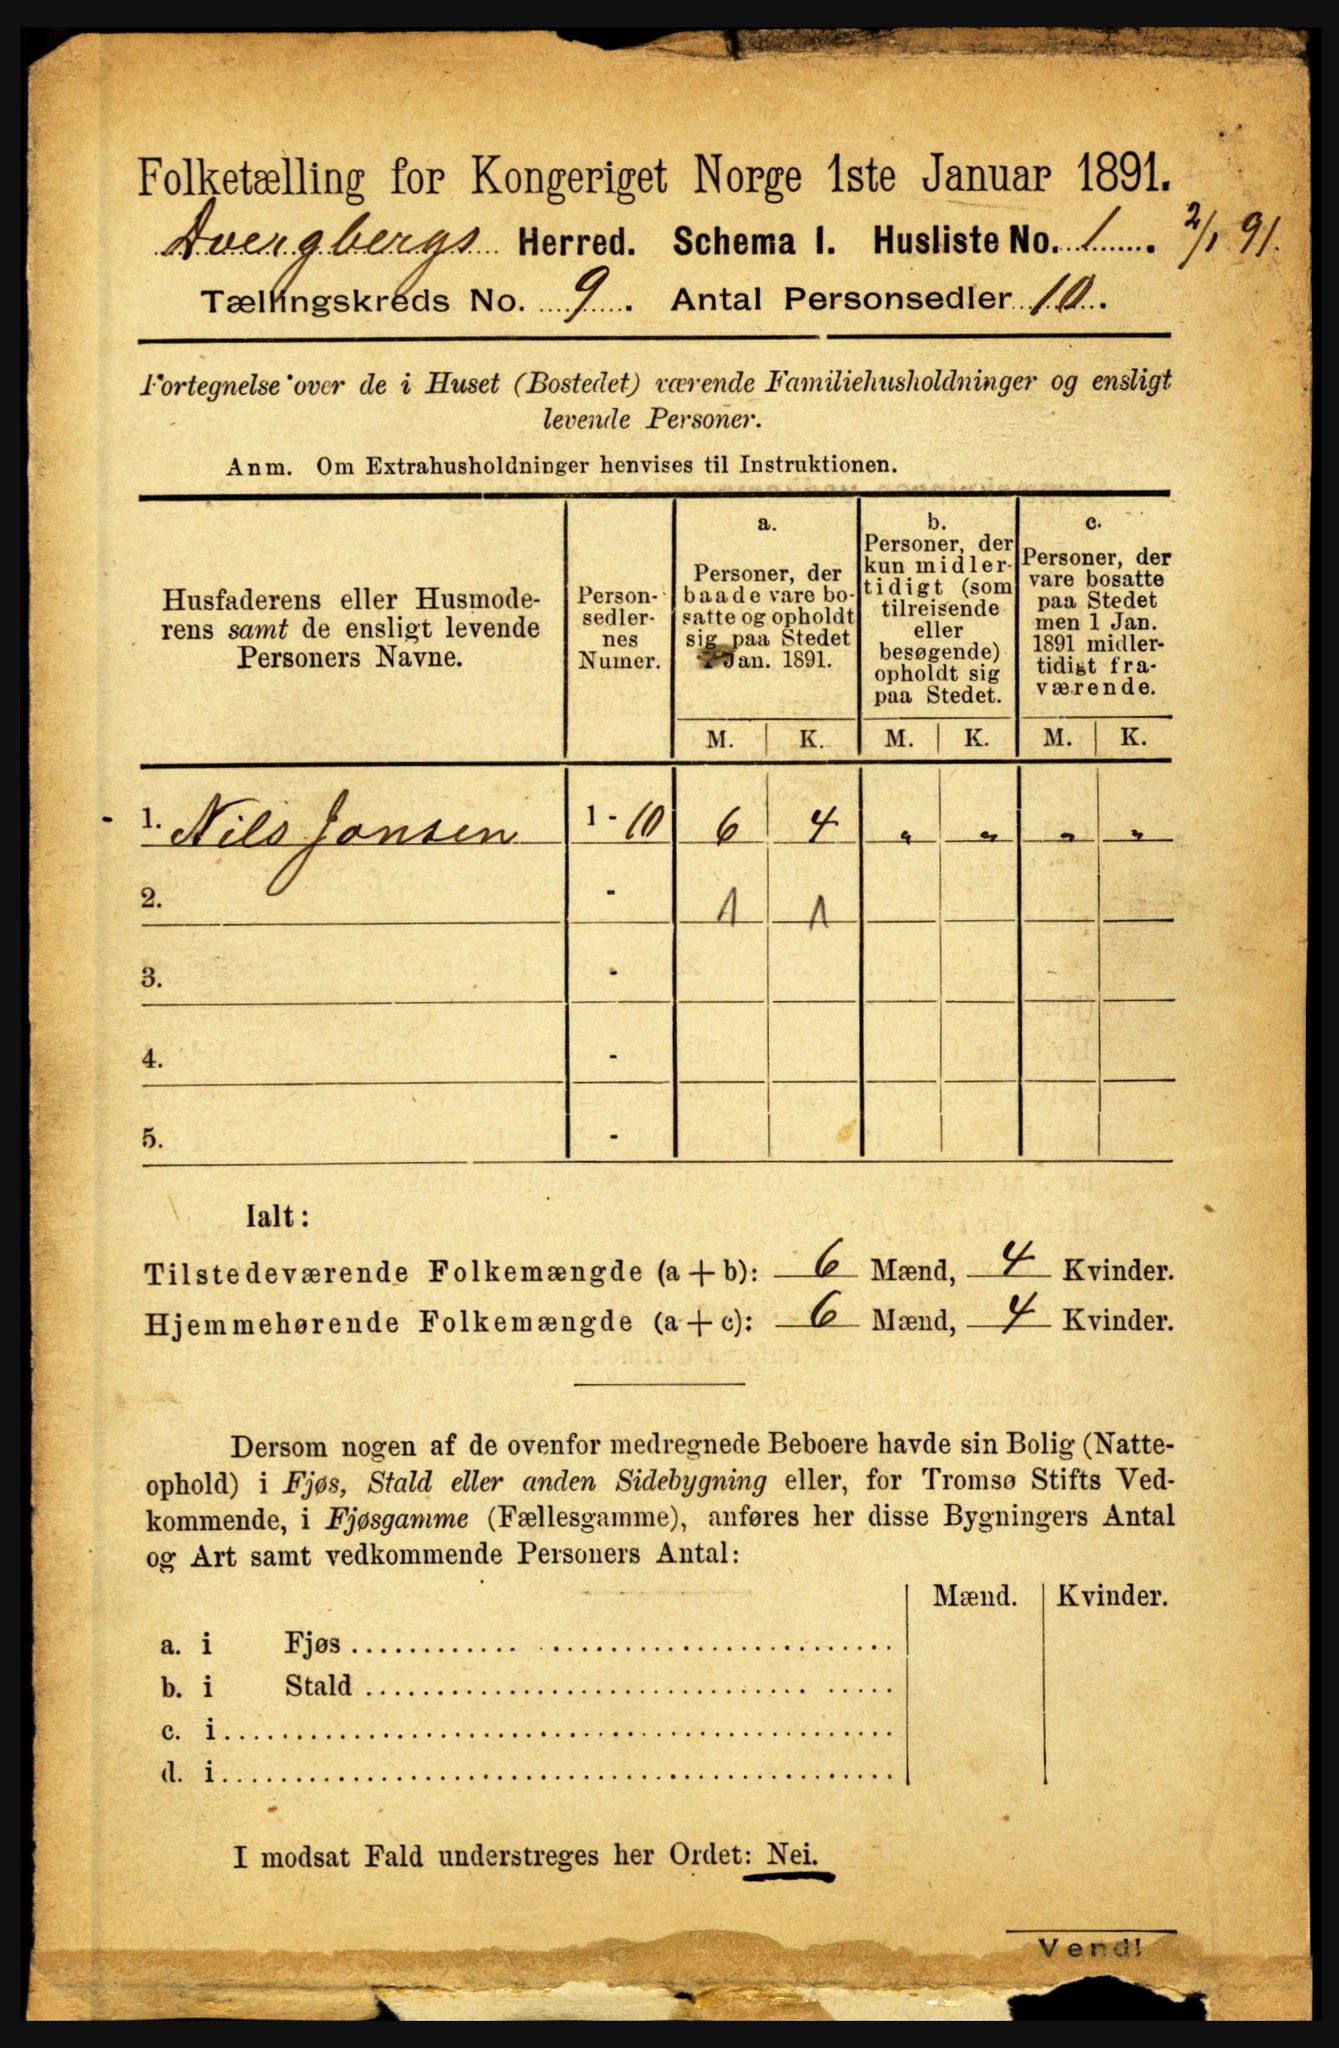 Folketælling for Kongeriget Norge 1ste Januar 1891.
Dvergbergs Herred. Schema I. Husliste No. 1. 2/1 91.
Tællingskreds No. 9. Antal Personsedler 10.
Fortegnelse over de i Huset (Bostedet) værende Familiehusholdninger og ensligt
levende Personer.
Anm. Om Extrahusholdninger henvises til Instruktionen.
Husfaderens eller Husmode-
rens samt de ensligt levende
Personers Navne.
Person-
sedler-
nes
Numer.
a.
Personer, der
baade vare bo-
satte og opholdt
sig paa Stedet
1 Jan. 1891.
b.
Personer, der
kun midler-
tidigt (som
tilreisende
eller
besøgende)
opholdt sig
paa Stedet.
c.
Personer, der
vare bosatte
paa Stedet
men 1 Jan.
1891 midler-
tidigt fra-
værende.
M. K. M. K. M. K.
1. Nils Jonsen 1 - 10 6 4 „ „ „ „
2. - 1 1
3. -
4. -
5. -
Ialt:
Tilstedeværende Folkemængde (a + b): 6 Mænd, 4 Kvinder.
Hjemmehørende Folkemængde (a + c): 6 Mænd, 4 Kvinder.
Dersom nogen af de ovenfor medregnede Beboere havde sin Bolig (Natte-
ophold) i Fjøs, Stald eller anden Sidebygning eller, for Tromsø Stifts Ved-
kommende, i Fjøsgamme (Fællesgamme), anføres her disse Bygningers Antal
og Art samt vedkommende Personers Antal:
Mænd. Kvinder.
a. i Fjøs
b. i Stald
c. i
d. i
I modsat Fald understreges her Ordet: Nei.
Vend!